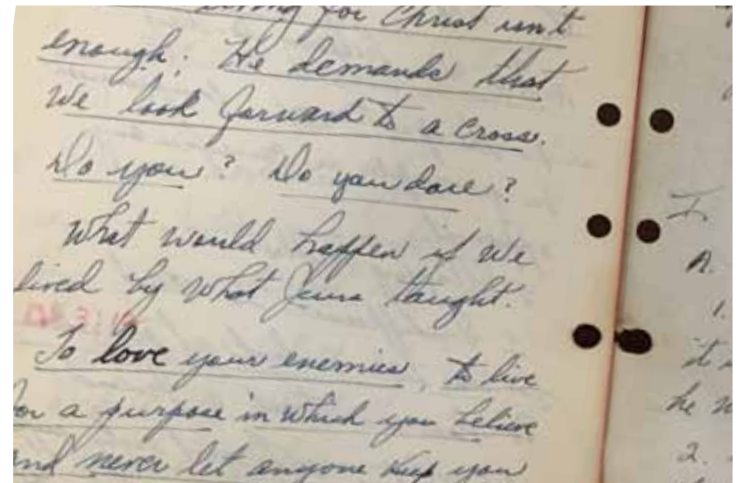 for Christ isn't
enough; He demands that
we look forward to a cross.
Do you? Do you dare?
What would happen if we
lived by what Jesus taught.
To love your enemies, to live
for a purpose in which you believe
and never let anyone keep you
I
A.
1.
it
he
2.